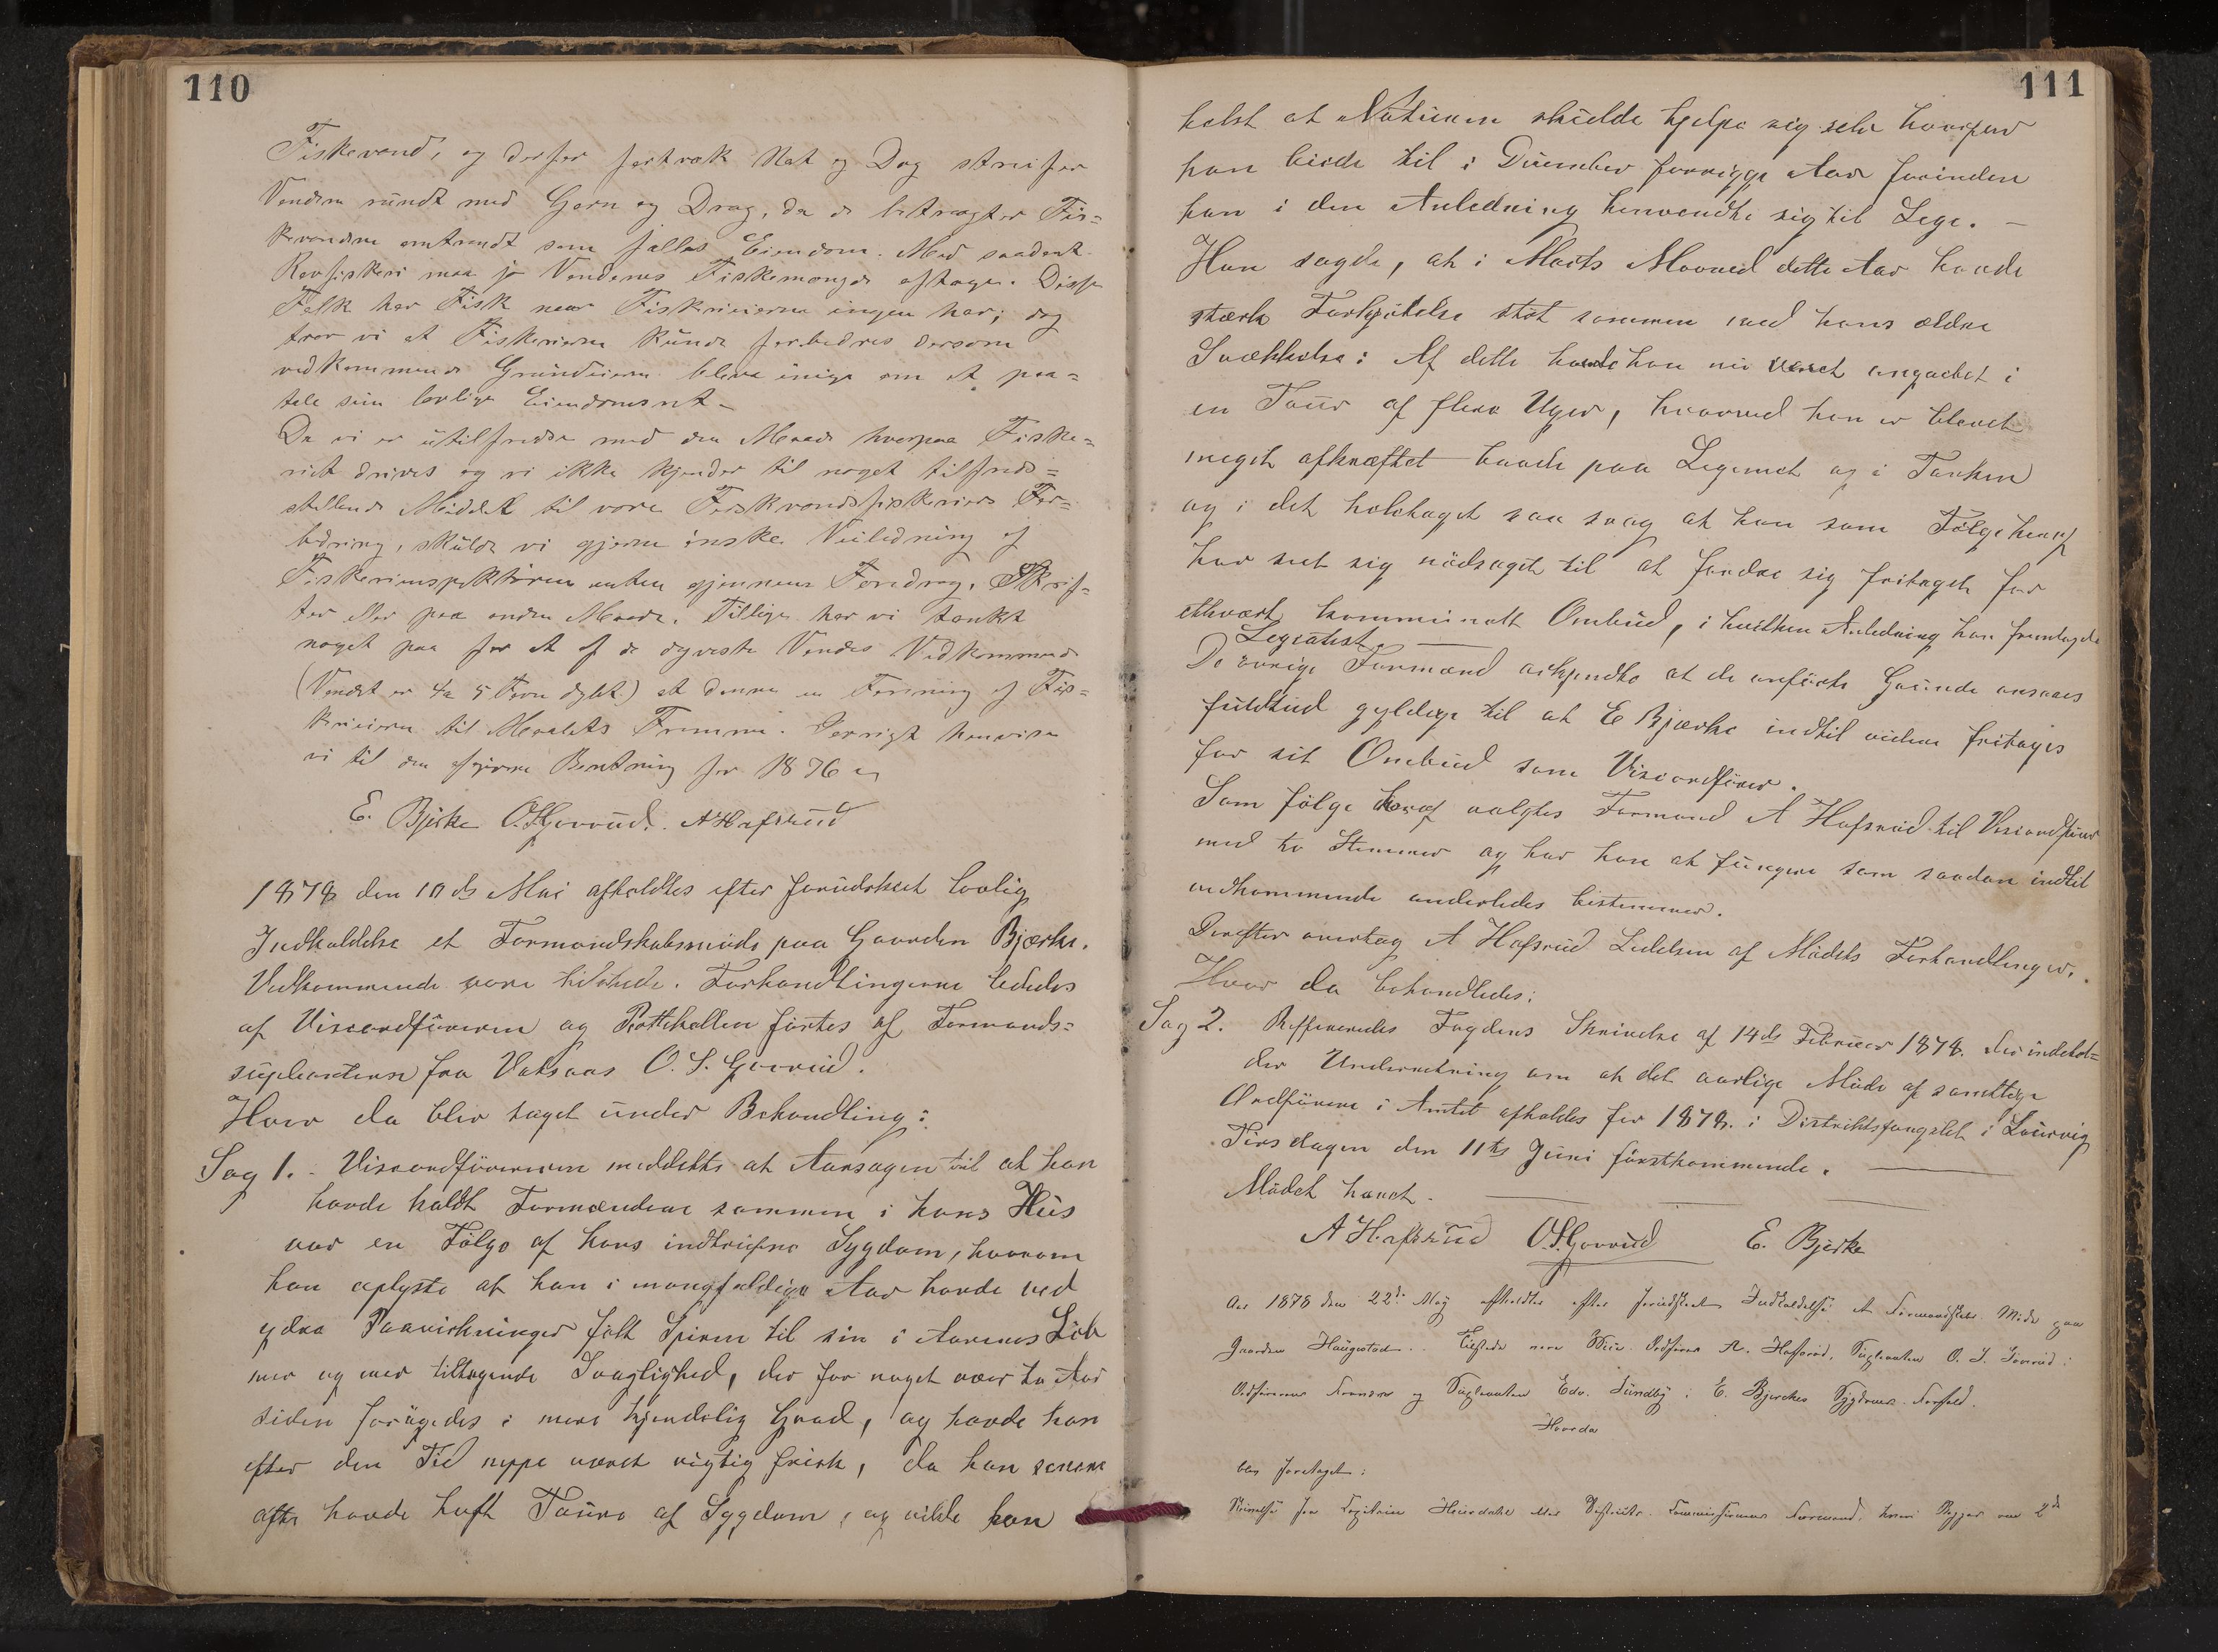 110
Fiskevand, og derfor fortræk Nat og Dag streifer
Vandene rundt med Garn og Drag, da de betragter Fis=
kevandene omtrendt som fælles Eiendom. Med saadant
Rovfiskeri maa jo Vandenes Fiskemængde aftage. Disse
Folk har Fisk naar Fiskerieierne ingen har; dog
tror vi at Fiskerierne kunde forbedres dersom
vedkommende Grundeiere bleve enige om at paa=
tale sin lovlige Eiendomsret –
Da vi er utilfredse med den Maade hvorpaa Fiske=
riet drives og vi ikke kjender til noget tilfreds=
stillende Middel til vore Ferskvandsfiskeriers For=
bedring, skulde vi gjerne ønske Veiledning af
Fiskeriinspektøren enten gjennem Foredrag, Skrif=
ter eller paa anden Maade. Tillige har vi tænkt
noget paa for et af de dyreste Vandes Vedkommende
(Vandet er 4 a 5 Favne dybt) at danne en Forening af Fis=
kerieierne til Maalets Fremme. Forøvrigt henvise
vi til den afgivne Beretning for 1876
E. Bjerke O.S.Gaarud. A Hafsrud
1878 den 10de Mai afholdtes efter forudskeet lovlig
Indkaldelse et Formandskabsmøde paa Gaarden Bjærke.
Vedkommende vare tilstede. Forhandlingerne lededes
af Viseordføreren og Protokollen førtes af Formands=
supleanten fra Vaksaas O. S. Gaarud.
Hvor da blev taget under Behandling:
Sag 1. Viseordføreren meddelte at Aarsagen til at han
havde kaldt Formændene sammen i hans Hus
var en Følge af hans indtrufne Sygdom, hvorom
han oplyste at han i mangfoldige Aar havde ved
ydre Paavirkninger følt Spiren til sin i Aarenes Løb
mer og mer tiltagende Svaglighed, der for noget over to Aar
siden forøgedes i mere kjendelig Grad, og havde han
efter den Tid neppe været rigtig frisk, da han senere
ofte havde havt Toure af Sygdom, og vilde han
111
helst at Naturen skulde hjelpe sig selv hvorpaa
han biede til i December forrige Aar forinden
han i den Anledning henvendte sig til Læge. –
Han sagde, at i Marts Maaned dette Aar havde
stærk Forkjølelse støt sammen med hans ældre
Svækkelse: Af dette havde han nu været angrebet i
en Tour af flere Uger, hvorved han er blevet
meget afkræftet baade paa Legemet og i Tanken
og i det heletaget saa svag at han som Følge heraf
har seet sig nødsaget til at fordre sig fritaget for
ethvert kommunalt Ombud, i hvilken Anledning han fremlagde
Legeattest. —
De øvrige Formænd erkjendte at de anførte Grunde ansaaes
fuldtud gyldige til at E Bjærke indtil videre fritages
for sit Ombud som Viseordfører.
Som følge heraf valgtes Formand A Hafsrud til Viseordfører
med to Stemmer og har han at fungere som saadan indtil
vedkommende anderledes bestemmer.
Derefter overtog A Hafsrud Ledelsen af Mødets Forhandlinger.
Hvor da behandledes:
Sag 2. Reffereredes Fogdens Skrivelse af 14de Februar 1878. der indehol=
der Underretning om at det aarlige Møde af samtlige
Ordførere i Amtet afholdes for 1878. i Distriktsfængslet i Laurvig
Tirsdagen den 11te Juni førstkommende. —
Mødet hævet. —
A Hafsrud O.S.Gaarud E. Bjerke
Aar 1878 den 22de Maj afholdtes efter forudskeet Indkaldelse et Formandskabs Møde paa
Gaarden Haugestad. Tilstede vare Vice Ordfører A. Hafsrud, Supleanten O. S. Gaarud i
Ordførerens Fravær og Supleanten Edv. Sundby i E. Bjerkes Sygdoms Forfald.
Hvorda
blev foretaget:
Skrivelse fra Capitain